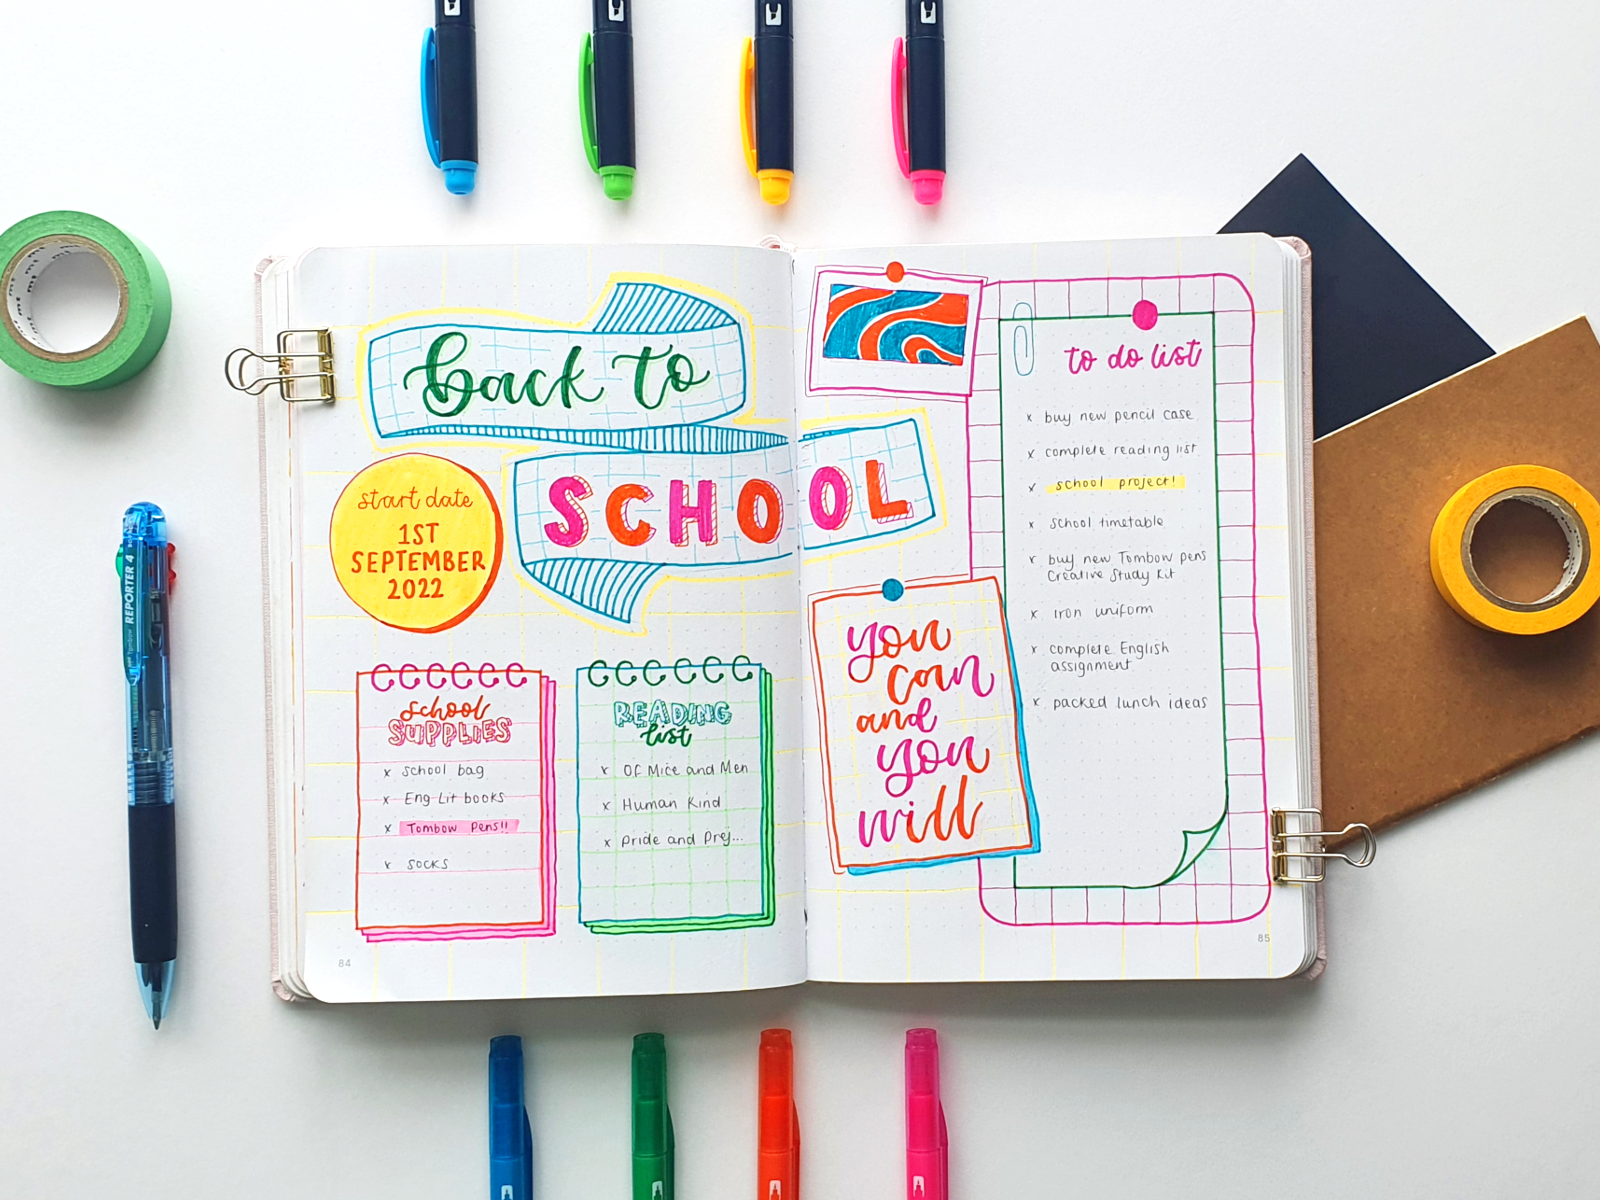 back to
SCHOOL
start date
1ST
SEPTEMBER
2022
school
SUPPLIES
x school bag
x Eng Lit books
x Tombow Pens!!
x socks
READING
list
x Of Mice and Men
x Human Kind
x Pride and Prej...
84
you
can
and
you
will
to do list
x buy new pencil case
x complete reading list
x school project!
x school timetable
x buy new Tombow pens
Creative Study Kit
x iron uniform
x complete English
assignment
x packed lunch ideas
85
Tombow REPORTER 4
mt mt mt